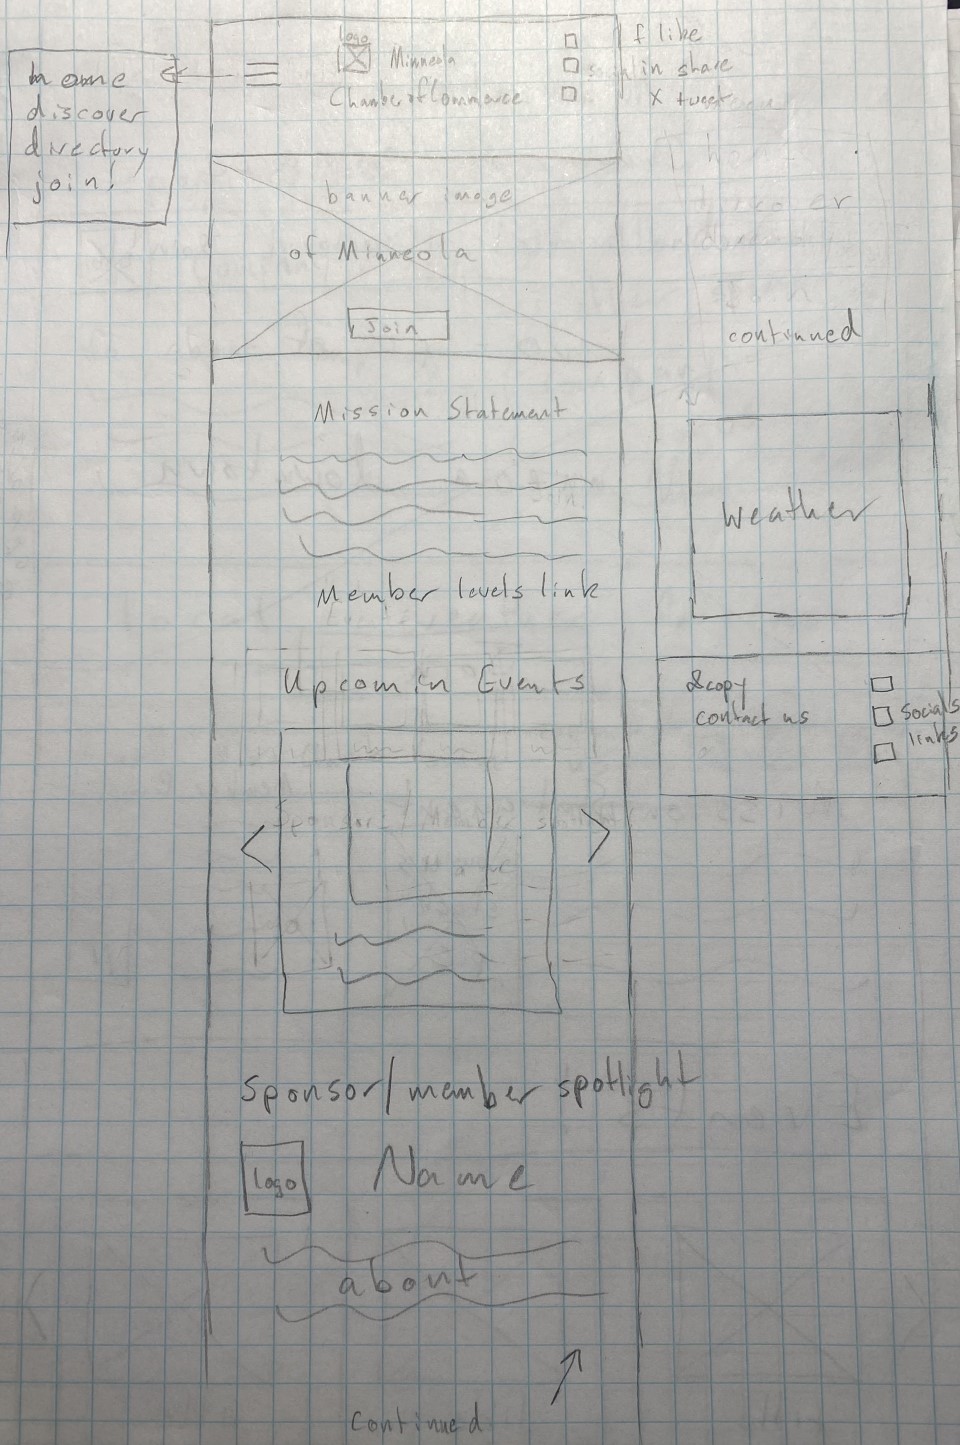 home
discover
directory
join!
logo
Minneola
Chamber of Commerce
f like
in share
X tweet
banner image
of Minneola
Join
Mission Statement
Member levels link
Upcomin Events
Sponsor/member spotlight
logo
Name
about
continued
continued
Weather
&copy
contact us
socials
links